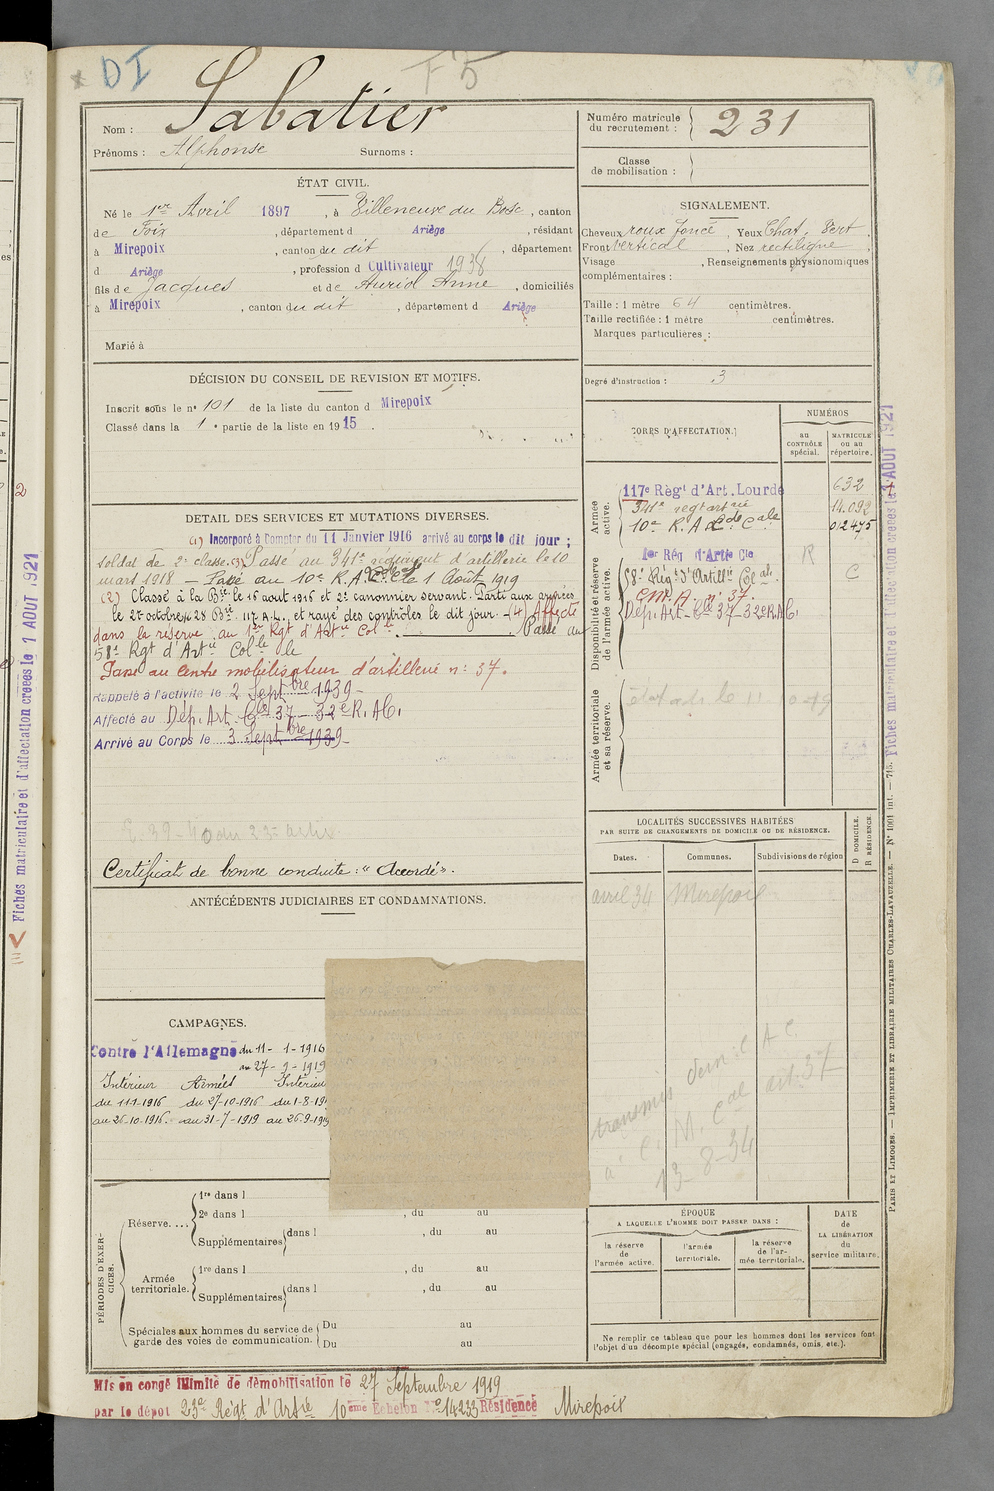 DI
F5
Nom : Sabatier
Prénoms : Alphonse Surnoms :
Numéro matricule du recrutement : 231
Classe de mobilisation :
ÉTAT CIVIL.
Né le 1er Avril 1897, à Villeneuve du Bosc, canton
de Foix, département d Ariège, résidant
à Mirepoix, canton du dit, département
d Ariège, profession d Cultivateur 1938
fils de Jacques et de Auriol Anne, domiciliés
à Mirepoix, canton du dit, département d Ariège
Marié à
SIGNALEMENT.
Cheveux roux foncé, Yeux Chat. Vert,
Front vertical, Nez rectiligne,
Visage , Renseignements physionomiques
complémentaires :
Taille : 1 mètre 64 centimètres.
Taille rectifiée : 1 mètre centimètres.
Marques particulières :
Degré d'instruction : 3
DÉCISION DU CONSEIL DE REVISION ET MOTIFS.
Inscrit sous le n° 101 de la liste du canton d Mirepoix
Classé dans la 1e partie de la liste en 1915.
DÉTAIL DES SERVICES ET MUTATIONS DIVERSES.
(1) Incorporé à Compter du 11 Janvier 1916 arrivé au corps le dit jour ;
soldat de 2e classe. (3) Passé au 341e régiment d'artillerie le 10
mars 1918 — Passé au 10e R.A. Cle 1 Août 1919
(2) Classé à la Bie le 16 aout 1916 et 2e canonnier servant. Parti aux armées
le 27 octobre 28 Bie 117 A.L. et rayé des contrôles le dit jour. (4) Affecté
dans la réserve au 1er Rgt d'Artie Colle Passé au
58e Rgt d'Artie Colle le
Passé au Centre mobilisateur d'artillerie n° 37.
Rappelé à l'activité le 2 Septbre 1939
Affecté au Dép. Art. Cle 37 - 32e R.A.C.
Arrivé au Corps le 3 Septbre 1939
Certificat de bonne conduite : " Accordé ".
CORPS D'AFFECTATION.
NUMÉROS
au CONTRÔLE spécial.
MATRICULE ou au répertoire.
Armée active.
117e Règt d'Art. Lourde 632
341e regt artie 14.092
10e R. A. Cale 012475
Disponibilité et réserve de l'armée active.
1er Rég d'Artie Cle R
58e Régt d'Artillie Colale C
C.M.A. n° 37
Dép. Art. Cle 37 - 32e R.A.C.
Armée territoriale et sa réserve.
LOCALITÉS SUCCESSIVES HABITÉES
PAR SUITE DE CHANGEMENTS DE DOMICILE OU DE RÉSIDENCE.
Dates. Communes. Subdivisions de région
D DOMICILE.
R RÉSIDENCE.
avril 34 Mirepoix
transmis
à C. M. Cal art. 37
13-8-34
ANTÉCÉDENTS JUDICIAIRES ET CONDAMNATIONS.
CAMPAGNES.
Contre l'Allemagne du 11-1-1916
au 27-9-1919
Intérieur Armées Intérieur
du 11-1-1916 du 27-10-1916 du 1-8-19
au 26-10-1916. au 31-7-1919 au 26-9-1919
PÉRIODES D'EXERCICES.
Réserve....
1re dans l
2e dans l , du au
Supplémentaires dans l , du au
Armée territoriale.
1re dans l , du au
Supplémentaires dans l , du au
Spéciales aux hommes du service de garde des voies de communication.
Du au
Du au
ÉPOQUE
A LAQUELLE L'HOMME DOIT PASSER DANS :
la réserve de l'armée active.
l'armée territoriale.
la réserve de l'armée territoriale.
DATE de LA LIBÉRATION du service militaire.
Ne remplir ce tableau que pour les hommes dont les services font
l'objet d'un décompte spécial (engagés, condamnés, omis, etc.).
Mis en congé illimité de démobilisation le 27 Septembre 1919
par le dépôt 23e Régt d'Artie 10ème Echelon N° 14233 Résidence Mirepoix
Fiches matriculaire et d'affectation créées le 1 AOUT 1921
Fiches matriculaire et d'affectation créées le 1 AOUT 1921
PARIS ET LIMOGES. — IMPRIMERIE ET LIBRAIRIE MILITAIRES CHARLES-LAVAUZELLE. — N° 1001 int. — 715.